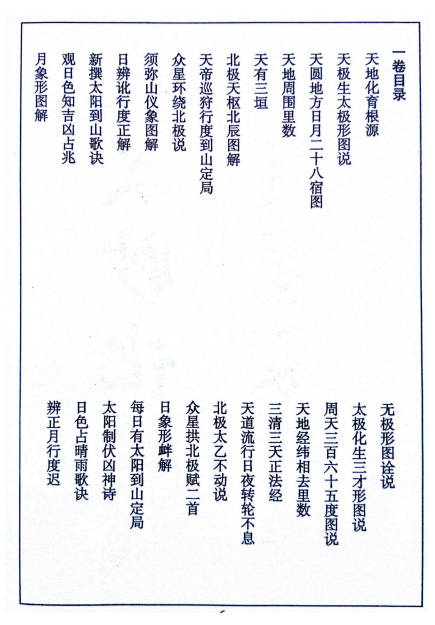 一卷目录
天地化育根源
无极形图诠说
天极生太极形图说
太极化生三才形图说
天圆地方日月二十八宿图
周天三百六十五度图说
天地周围里数
天地经纬相去里数
天有三垣
三清三天正法经
北极天枢北辰图解
天道流行日夜转轮不息
天帝巡狩行度到山定局
北极太乙不动说
众星环绕北极说
众星拱北极赋二首
须弥山仪象图解
日象形衅解
日辨讹行度正解
每日有太阳到山定局
新撰太阳到山歌诀
太阳制伏凶神诗
观日色知吉凶占兆
日色占晴雨歌诀
月象形图解
辨正月行度迟